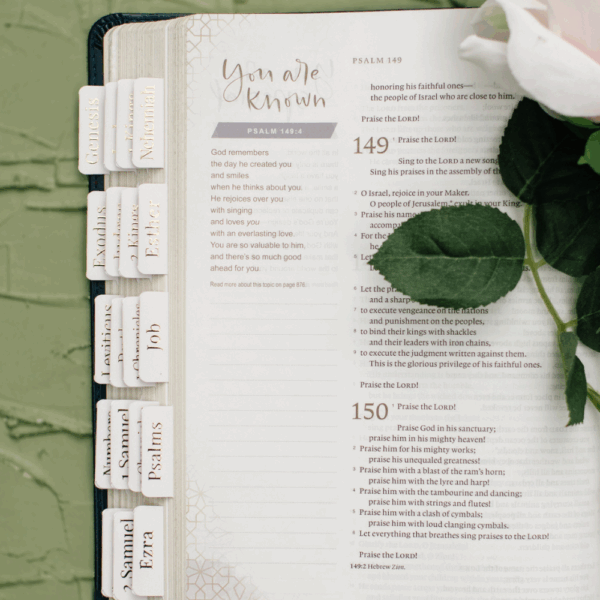 Genesis
Nehemiah
Exodus
2 Kings
Esther
Leviticus
1 Chronicles
Job
Numbers
1 Samuel
Psalms
2 Samuel
Ezra
You are
known
PSALM 149:4
God remembers
the day he created you
and smiles
when he thinks about you.
He rejoices over you
with singing
and loves you
with an everlasting love.
You are so valuable to him,
and there's so much good
ahead for you.
Read more about this topic on page 876.
PSALM 149
honoring his faithful ones—
the people of Israel who are close to him.
Praise the LORD!
149 1 Praise the LORD!
Sing to the LORD a new song
Sing his praises in the assembly of the
2 O Israel, rejoice in your Maker.
O people of Jerusalem,* exult in your King.
3 Praise his name
accompa
4 For the
he
5 Let
6 Let the pra
and a sharp
7 to execute vengeance on the nations
and punishment on the peoples,
8 to bind their kings with shackles
and their leaders with iron chains,
9 to execute the judgment written against them.
This is the glorious privilege of his faithful ones.
Praise the LORD!
150 1 Praise the LORD!
Praise God in his sanctuary;
praise him in his mighty heaven!
2 Praise him for his mighty works;
praise his unequaled greatness!
3 Praise him with a blast of the ram's horn;
praise him with the lyre and harp!
4 Praise him with the tambourine and dancing;
praise him with strings and flutes!
5 Praise him with a clash of cymbals;
praise him with loud clanging cymbals.
6 Let everything that breathes sing praises to the LORD!
Praise the LORD!
149:2 Hebrew Zion.